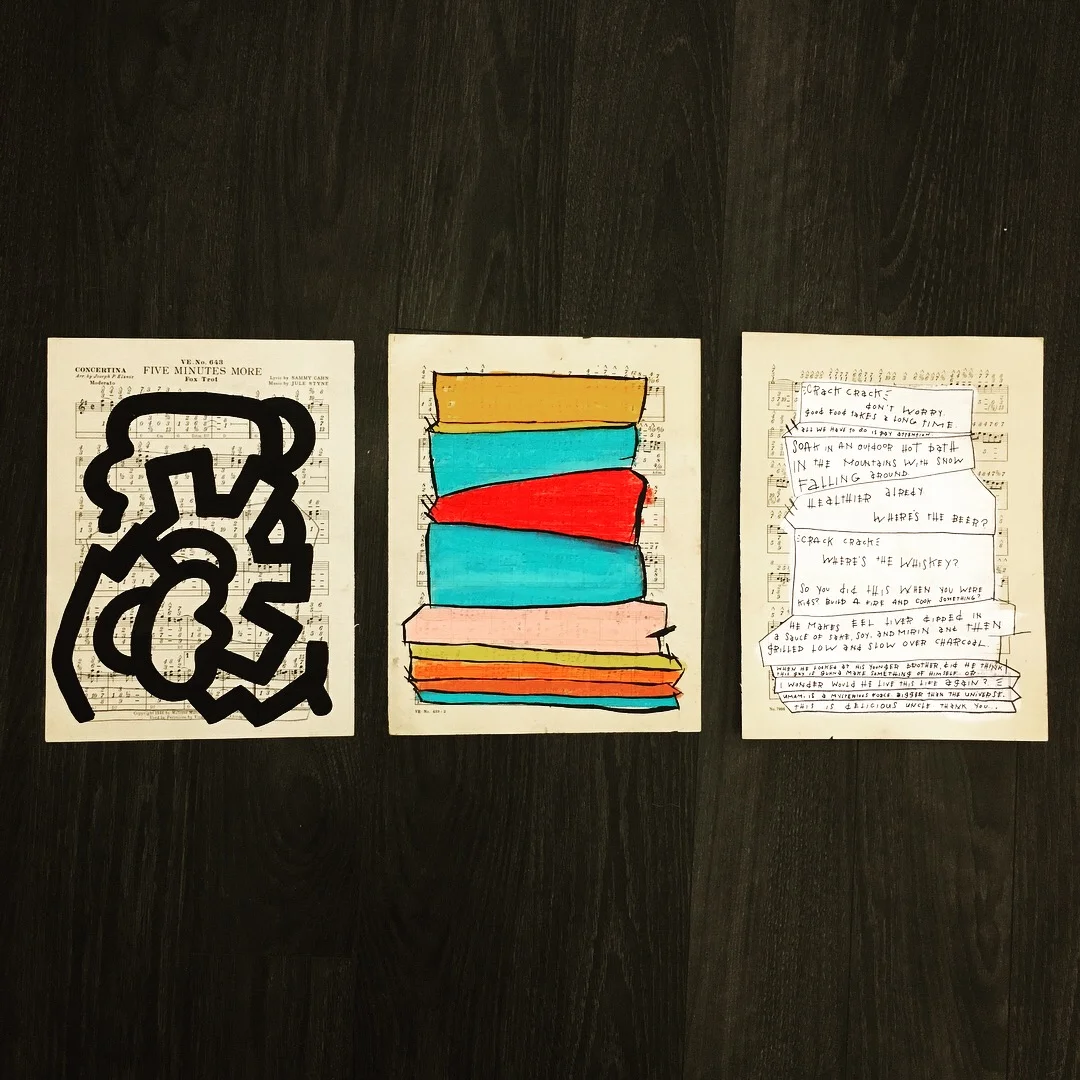 VE. No. 643
CONCERTINA
FIVE MINUTES MORE
Arr. by Joseph P. Elsnic
Fox Trot
Lyric by SAMMY CAHN
Music by JULE STYNE
Moderato
CRACK CRACK
DON'T WORRY.
GOOD FOOD TAKES A LONG TIME.
ALL WE HAVE TO DO IS PAY ATTENTION.
SOAK IN AN OUTDOOR HOT BATH
IN THE MOUNTAINS WITH SNOW
FALLING AROUND.
HEALTHIER ALREDY
WHERE'S THE BEER?
CRACK CRACK
WHERE'S THE WHISKEY?
SO YOU DID THIS WHEN YOU WERE
KIDS? BUILD A FIRE AND COOK SOMETHING?
HE MAKES EEL LIVER DIPPED IN
A SAUCE OF SAKE, SOY, AND MIRIN AND THEN
GRILLED LOW AND SLOW OVER CHARCOAL.
WHEN HE LOOKED AT HIS YOUNGER BROTHER, DID HE THINK
THIS GUY IS GONNA MAKE SOMETHING OF HIMSELF OR
I WONDER WOULD HE LIVE THIS LIFE AGAIN?
UMAMI IS A MYSTERIOUS FORCE BIGGER THAN THE UNIVERSE.
THIS IS DELICIOUS UNCLE THANK YOU.